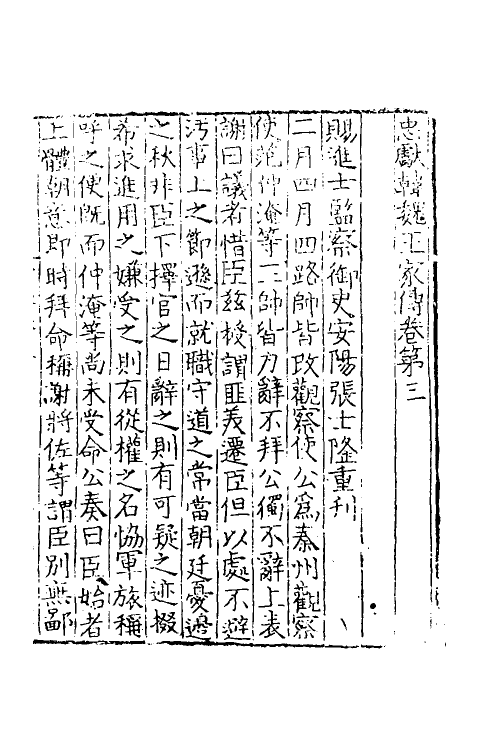 忠獻韓魏王家傳卷第三
賜進士監察御史安陽張士隆重刋
二月四月四路帥皆改觀察使公爲秦州觀察
使范仲淹等三帥皆力辭不拜公獨不辭上表
謝曰議者惜臣玆授謂匪義遷臣但以處不避
汚事上之節遜而就職守道之常當朝廷憂邊
之秋非臣下擇官之日辭之則有可疑之迹掇
希求進用之嫌受之則有從權之名恊軍旅稱
呼之便旣而仲淹等尚未受命公奏曰臣始者
上體朝意即時拜命稱謝將佐等謂臣别無鄙